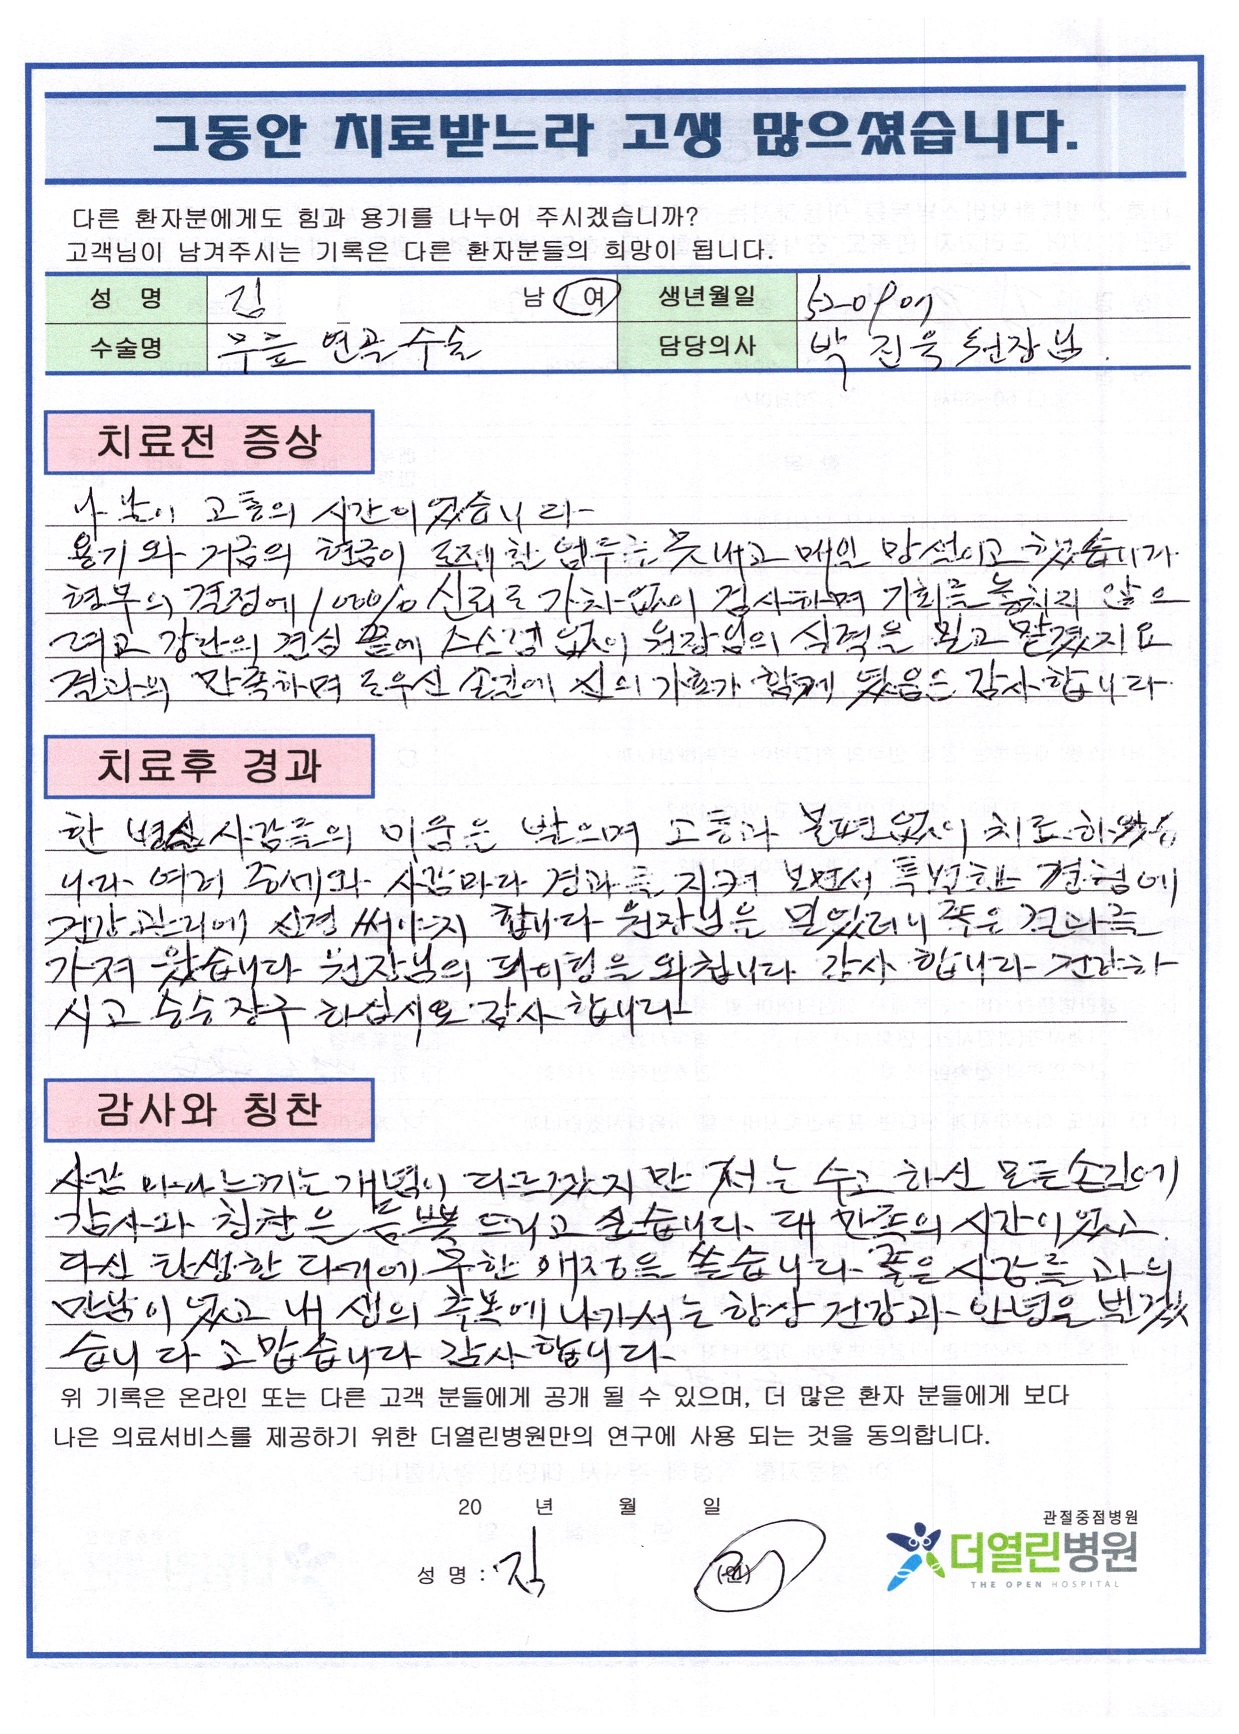 그동안 치료받느라 고생 많으셨습니다.
다른 환자분에게도 힘과 용기를 나누어 주시겠습니까?
고객님이 남겨주시는 기록은 다른 환자분들의 희망이 됩니다.
성 명 김 남 / 여 생년월일 520907
수술명 무릎 연골 수술 담당의사 박진욱 원장님.
치료전 증상
나날이 고통의 시간이였습니다
용기와 거금의 현금이 문제 할 엄두는 못내고 매일 망설이고 했습니다
형부의 결정에 100% 신뢰로 가차없이 검사하며 기회를 놓치지 않으
려고 강단의 결심 끝에 스스럼 없이 원장님의 실력을 믿고 맡겼지요
결과의 만족하며 도우신 손길에 신의 가호가 함께 했음은 감사합니다
치료후 경과
한 병실 사람들의 미움은 받으며 고통과 불편없이 치료하였습
니다 여러 증세와 사람마다 경과를 지켜보면서 특별한 경험에
건강관리에 신경써야지 합니다 원장님을 믿었더니 좋은 결과를
가져 왔습니다 원장님의 파이팅을 외칩니다 감사 합니다 건강하
시고 승승장구 하십시요 감사 합니다
감사와 칭찬
사람 마다 느끼는 개념이 다르겠지만 저는 수고 하신 모든 손길에
감사와 칭찬을 듬뿍 드리고 싶습니다 대 만족의 시간이였고
다신 탄생한 다리에 무한 애정을 쏟습니다 좋은 사람들과의
만남이 였고 내 생의 축복에 나가서는 항상 건강과 안녕을 빌겠
습니다 고맙습니다 감사합니다.
위 기록은 온라인 또는 다른 고객 분들에게 공개 될 수 있으며, 더 많은 환자 분들에게 보다
나은 의료서비스를 제공하기 위한 더열린병원만의 연구에 사용 되는 것을 동의합니다.
20 년 월 일
성 명 : 김 (인)
관절중점병원
더열린병원
THE OPEN HOSPITAL